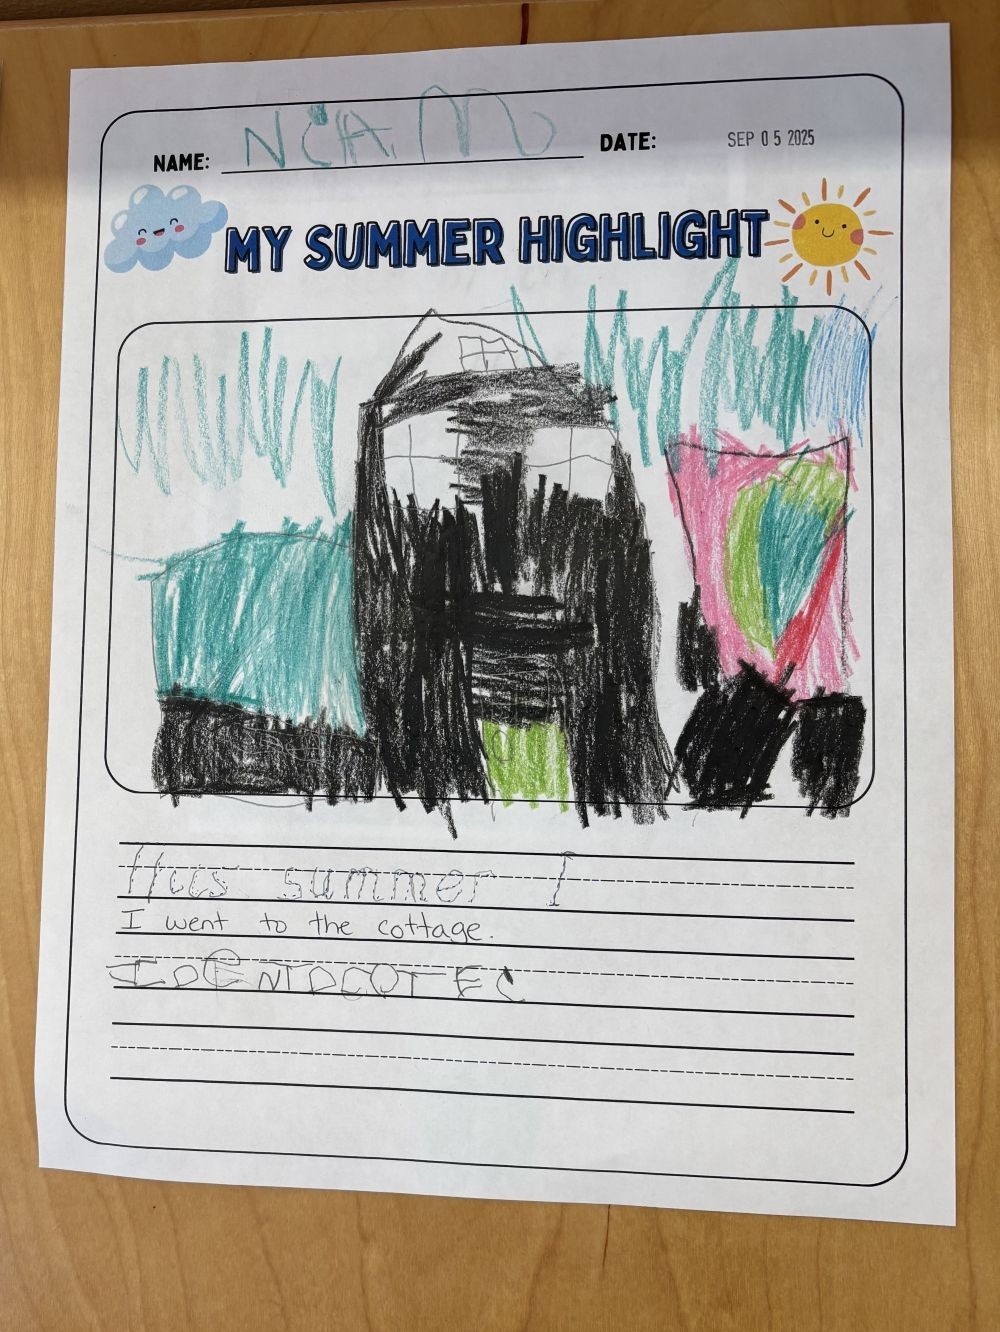 NAME: NiAM
DATE: SEP 05 2025
MY SUMMER HIGHLIGHT
This summer I
I went to the cottage.